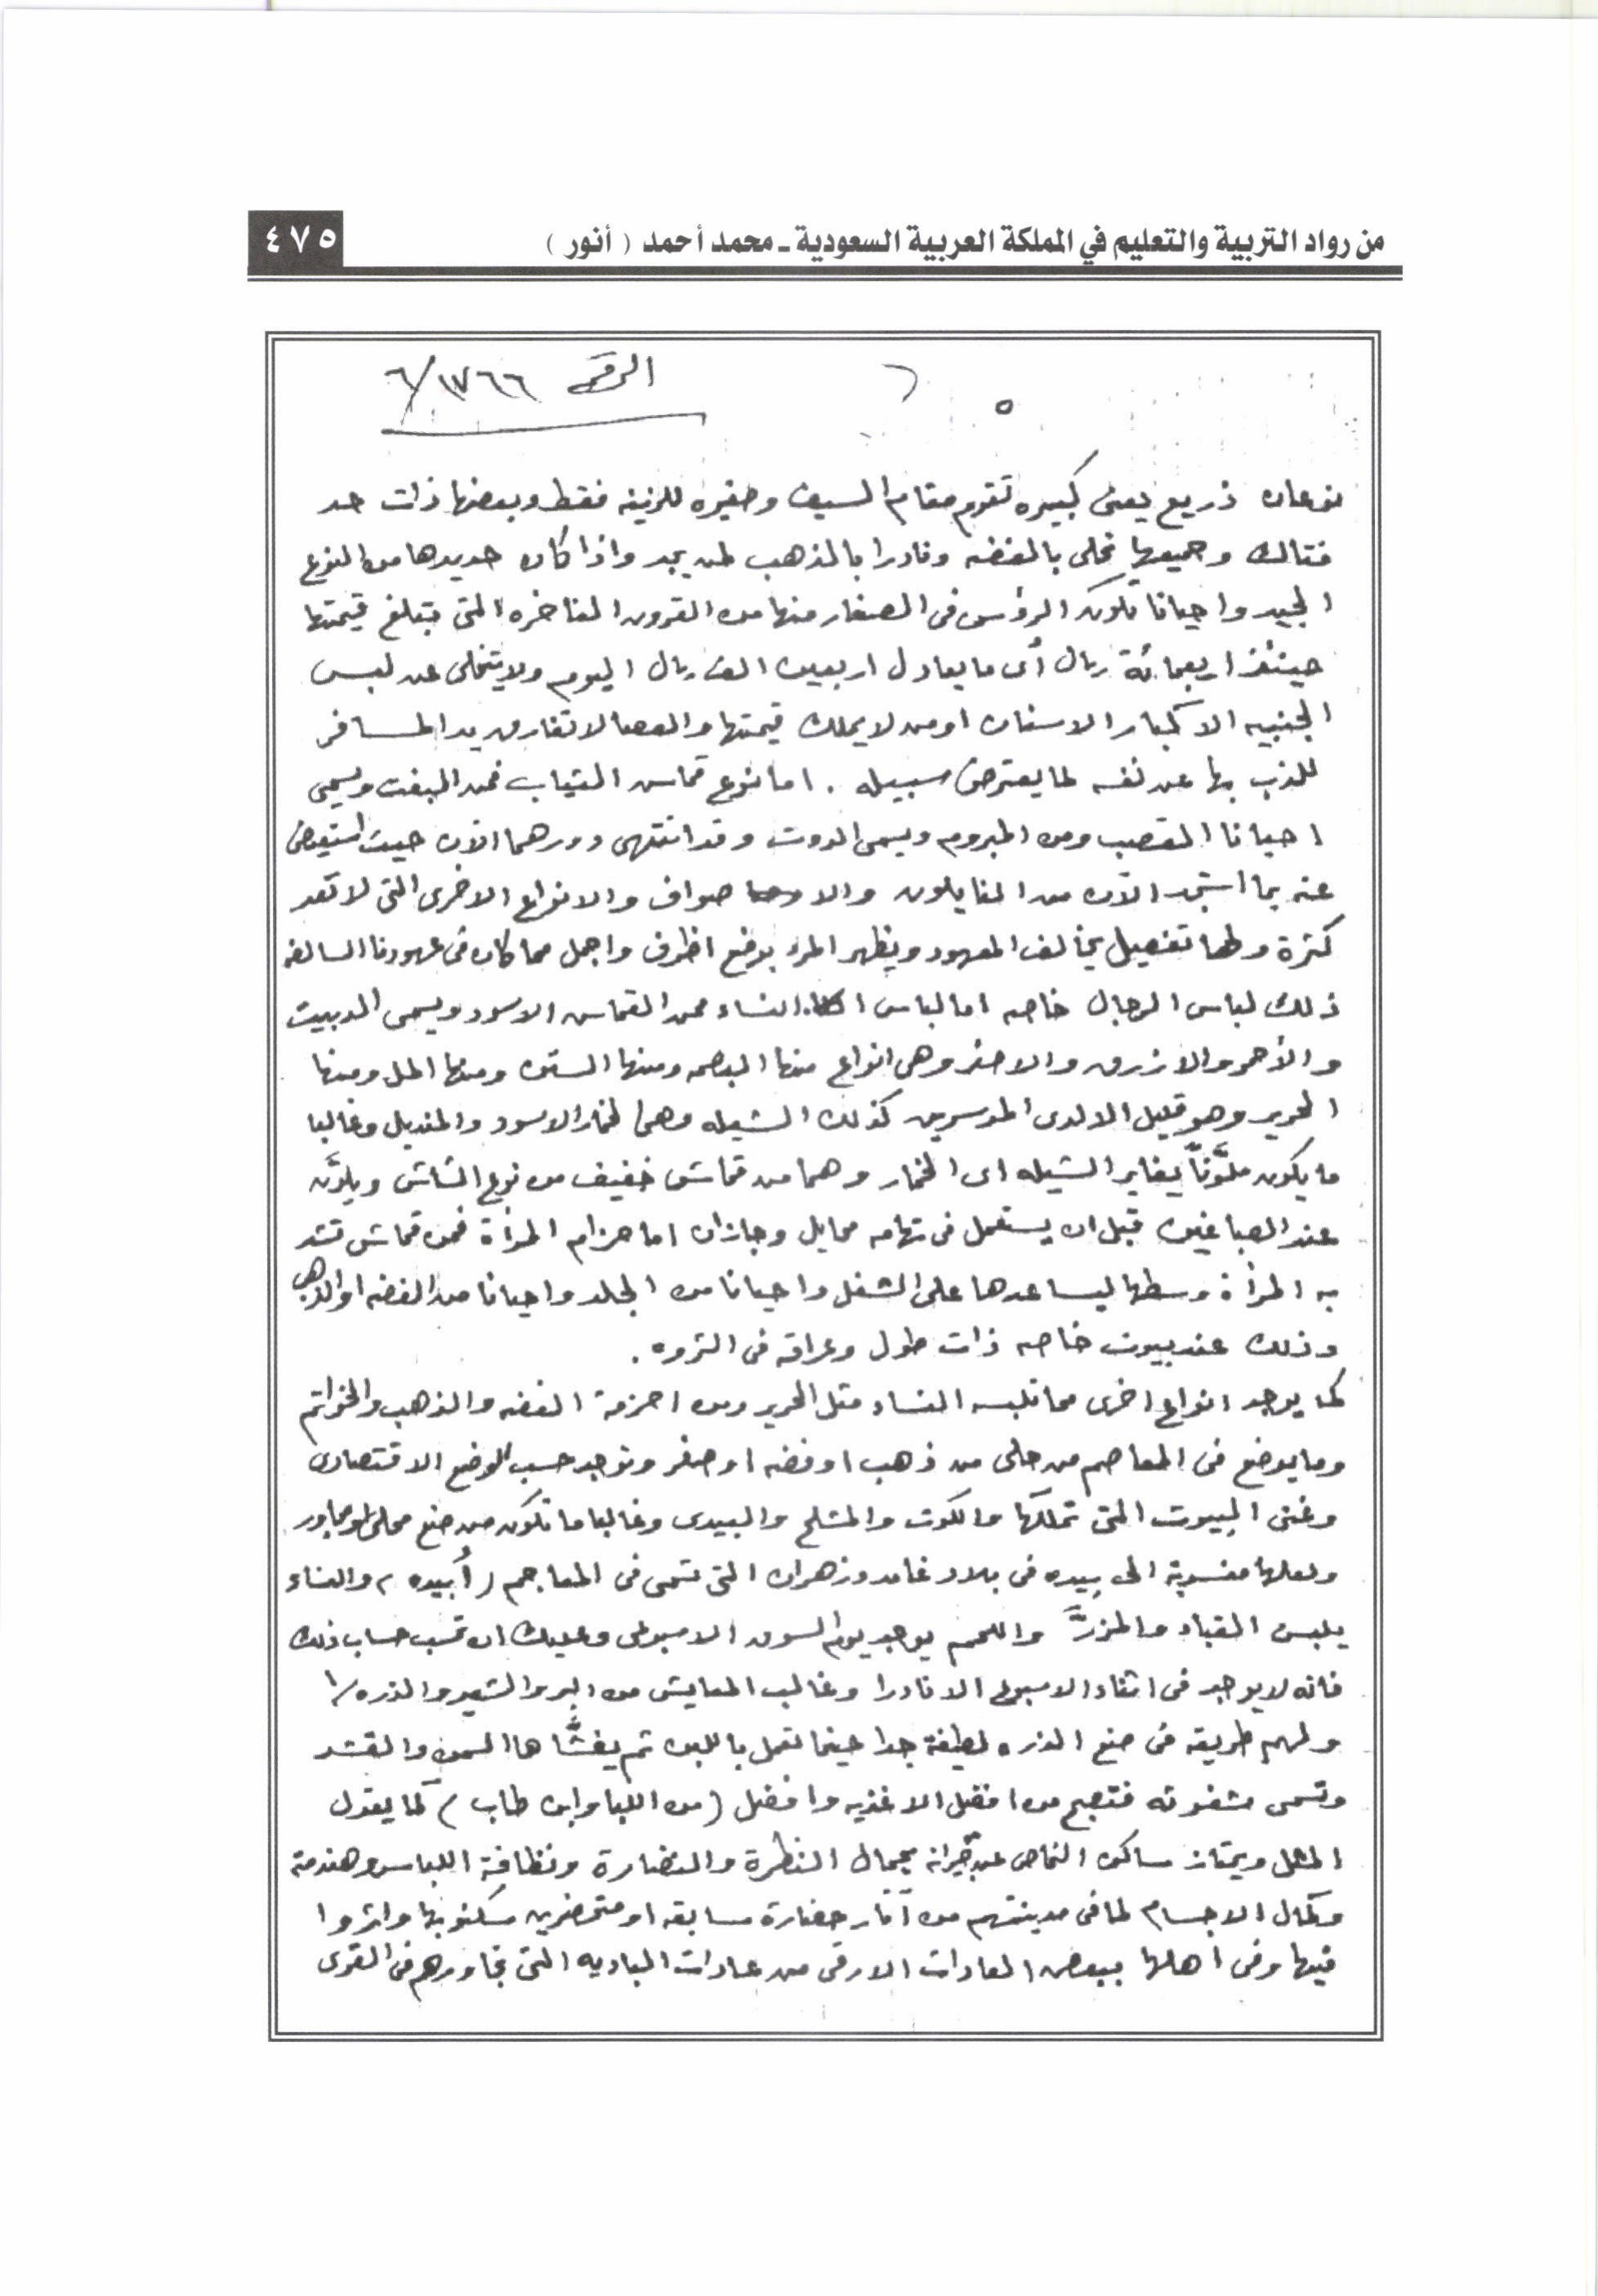 من رواد التربية والتعليم في المملكة العربية السعودية ـ محمد أحمد ( أنور )
٤٧٥
الرقم ١٧٦٦/٦
٥
نوعان ذريع يعنى كبيره تقوم مقام السيف وصغيره للزينه فقط وبعضها ذات حد
فتاك وجميعها تحلى بالفضه ونادرا بالذهب لمن يجد واذا كان حديدها من النوع
الجيد واحيانا تكون الرؤس فى الصغار منها من القرون الفاخره التى تبلغ قيمتها
حينئذ اربعمائة ريال أى ما يعادل اربعين الف ريال اليوم ولا يتخلى عن لبس
الجنبيه الا كبار الاسنان او من لا يملك قيمتها والعصا لا تفارق يد المسافر
للذب بها عن نفسه لما يعترض سبيله . اما نوع قماس الثياب فمن البفت ويسمى
احيانا القصب ومن المبروم ويسمى الدوت وقد انتهى دورهما الآن حيث استيعض
عنه بما استجد الآن من النايلون والا صواف والانواع الاخرى التى لا تعد
كثرة ولها تفصيل يخالف المعهود ويظهر المرء بوضع اظرف واجمل مما كان فى عهودنا السالفه
ذلك لباس الرجال خاصه اما لباس النساء فمن القماس الاسود ويسمى الدبيت
والأحمر والازرق والاصفر وهى انواع منها البصمه ومنها الستن ومنها الملل ومنها
الحرير وهو قليل الا لدى الموسرين كذلك الشيله وهى الخمار الاسود والمنديل وغالبا
ما يكون ملوَّناً يغاير الشيله اى الخمار وهما من قماش خفيف من نوع الشاش ويلوَّن
عند الصباغين قبل ان يستعمل فى تهامه محايل وجازان اما حزام المرأة فمن قماش تشد
به المرأة وسطها ليساعدها على الشغل واحيانا من الجلد واحيانا من الفضه او الذهب
وذلك عند بيوت خاصه ذات طول وعراقه فى الثروه .
كما يوجد انواع اخرى مما تلبسه النساء مثل الحرير ومن احزمة الفضه والذهب والخواتم
وما يوضع فى المعاصم من حلى من ذهب او فضه او صفر وتوجد حسب الوضع الاقتصادى
وغنى البيوت التى تملكها والكوت والمشلح والبيدى وغالبا ما تكون من صنع محلى او مجاور
ولعلها منسوبة الى بيده فى بلاد غامد وزهران التى تسمى فى المعاجم (أبيده) والنساء
يلبسن القباء والمزرَّ واللحم يوجد يوم السوق الاسبوعى وعليك ان تحسب حساب ذلك
فانه لا يوجد فى اثناء الاسبوع الا نادرا وغالب المعايش من البر والشعير والذره /
ولهم طريقه فى صنع الذره لطيفة جدا حينما تعمل باللبن ثم يغشَّاها السمن والقشد
وتسمى مشغوثه فتصبح من افضل الاغذيه وافضل (من اللبا وابن طاب) كما يقول
المثل ويمتاز ساكن النماص عن جيرانه بجمال النظرة والنضارة ونظافة اللباس وهندمته
وكمال الاجسام لما فى مدينتهم من آثار حضارة سابقه او متحضرين سكنو بها واثروا
فيها وفى اهلها ببعض العادات الارقى من عادات الباديه التى تجاورهم فى القرى